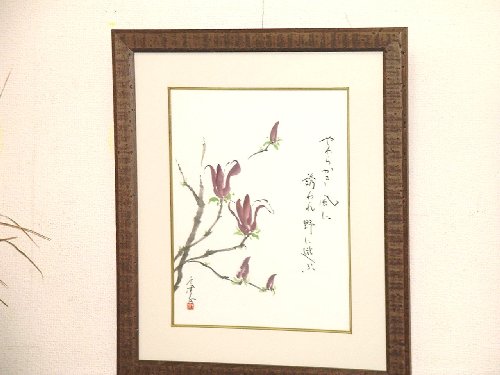 やわらかき風に
誘われ野に遊ぶ